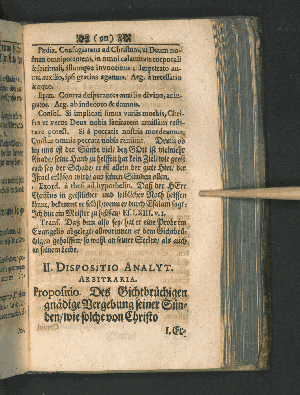 (90)
Pædia. Confugiamus ad Christum, ut Deum no-
strum omnipotentem, in omni calamitate corporali
& spirituali, illumque invocemus; Impetrato au-
tem auxilio, ipsi gratias agamus. Arg. à necessario
& æquo.
Epan. Contra desperantes auxilio divino, at in-
gratos. Arg. ab indecoro & damno.
Consol. Si implicati simus variis morbis, Chri-
stus ut verus Deus nobis sanitatem amissam resti-
tuere potest. Si à peccatis nostris mordeamur,
Christus omnia peccata nobis remittit. Denn ob
bey uns ist der Sünde viel/ bey GOtt ist vielmehr
Gnade/ seine Hand zu helffen hat kein Ziel/ wie groß
auch sey der Schade/ er ist allein der gute Hirt/ der
Israel erlösen wird/ aus seinen Sünden allen.
Exord. à thesi ad hypothesin. Daß der HErr
Christus in geistlicher und leiblicher Noth helffen
könne,
Ich bin ein Meister zu helffen/ Es. LXIII. v. 1.
Trans. Daß dem also sey/ hat er eine Probe im
Evangelio abgelegt/ allwo er dem Gichtbrü-
chigen geholffen/ so wohl an seiner Seelen/ als auch
an seinem Leibe.
II. DISPOSITIO ANALYT.
ARBITRARIA.
Propositio. Des Gichtbrüchigen
gnädige Vergebung seiner Sün-
den/ wie solche von Christo
I. Er-